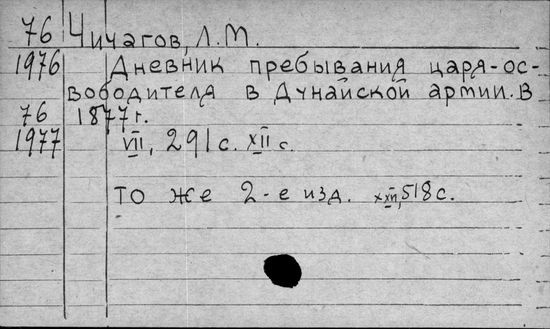 76 Чичагов, Л.М.
1976 Дневник пребывания царя-ос-
вободителя в Дунайской армии. В
76 1877 г.
1977 VII, 291 с. XII с.
то же 2-е изд. XXII, 518 с.